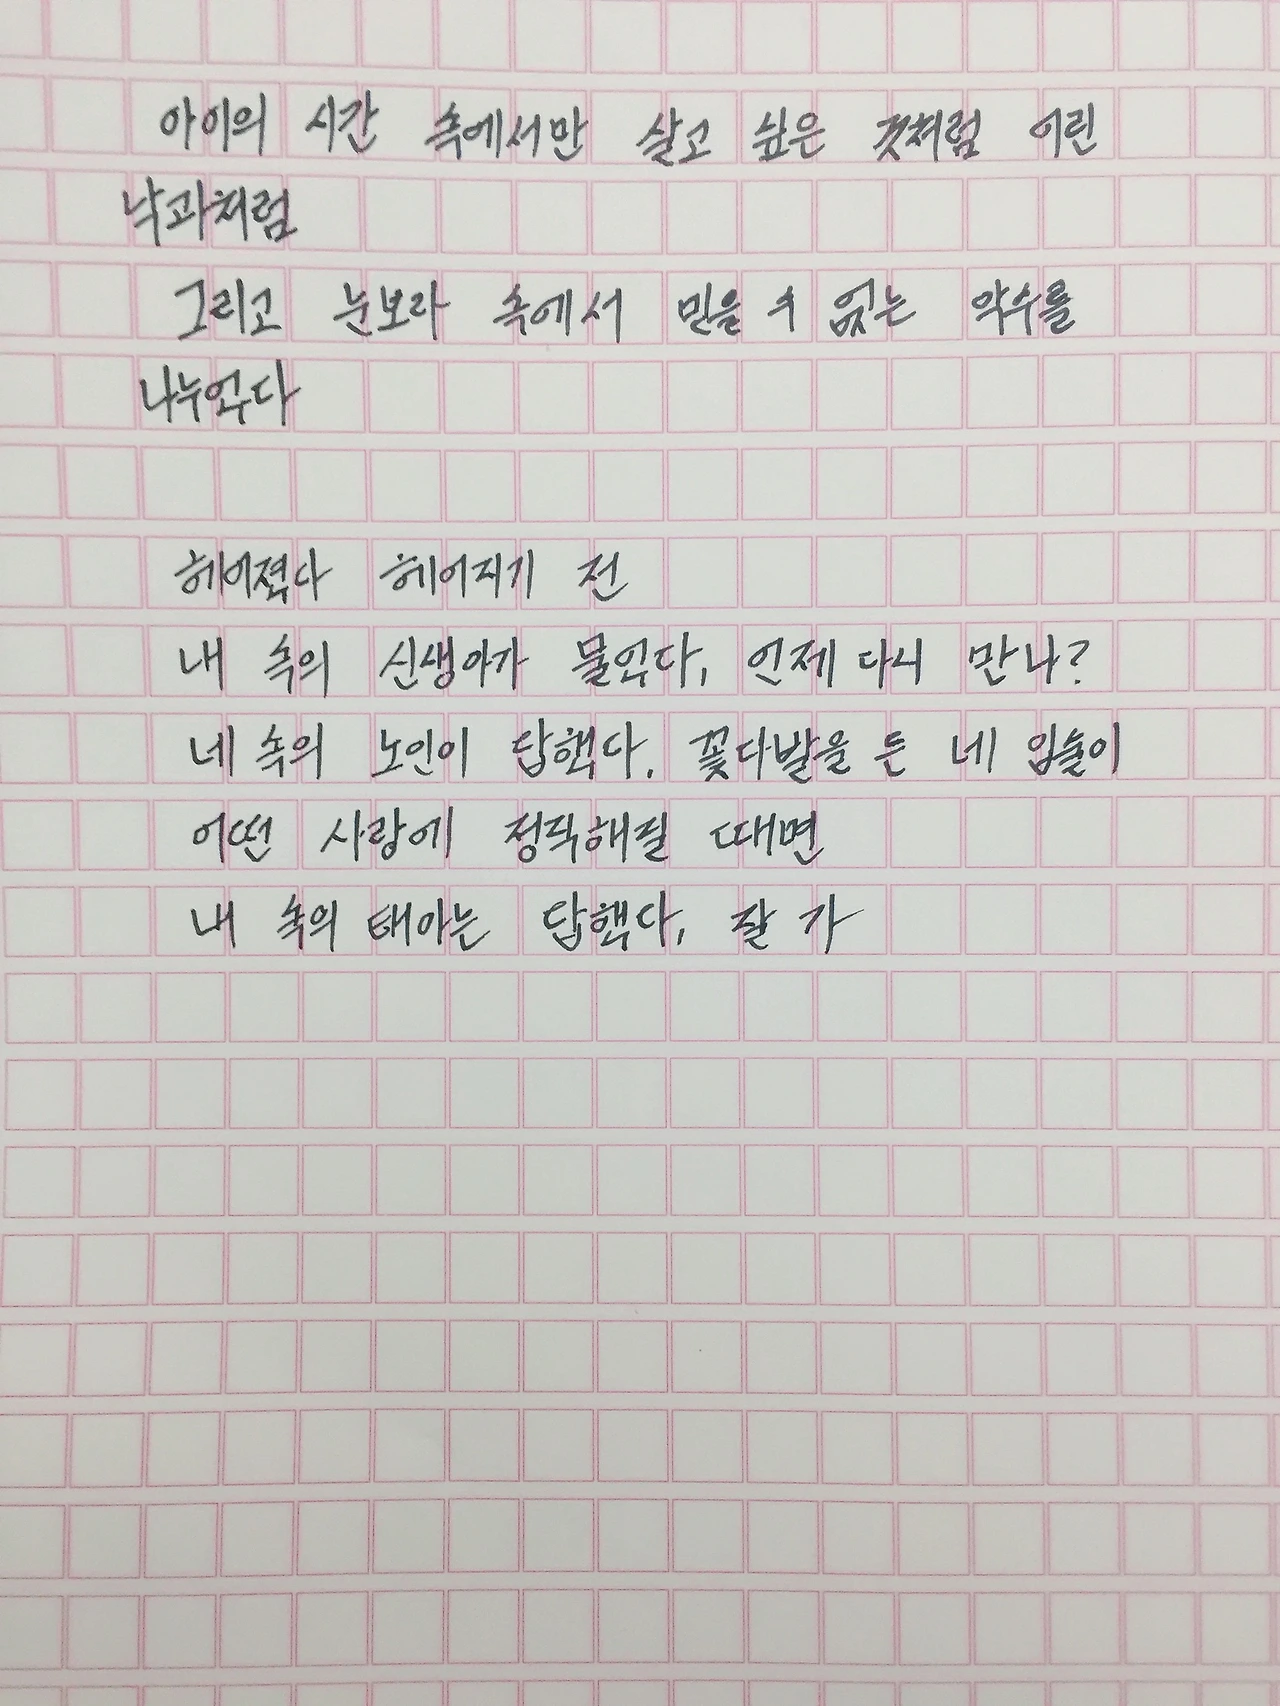 아이의 시간 속에서만 살고 싶은 것처럼 어린
낙과처럼
그리고 눈보라 속에서 믿을 수 없는 악수를
나누었다
헤어졌다 헤어지기 전
내 속의 신생아가 물었다, 언제 다시 만나?
네 속의 노인이 답했다. 꽃다발을 든 네 입술이
어떤 사랑에 정직해질 때면
내 속의 태아는 답했다, 잘 가